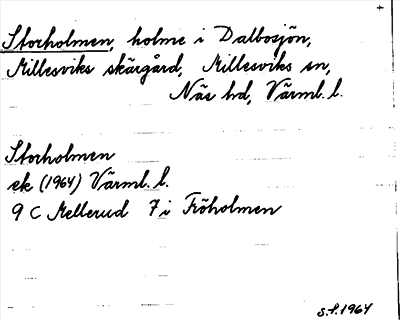 Storholmen, holme i Dalbosjön,
Millesviks skärgård, Millesviks sn,
Näs hd, Värml. l.
Storholmen
ek (1964) Värml. l.
9 C Mellerud 7 i Fröholmen
S.f. 1964